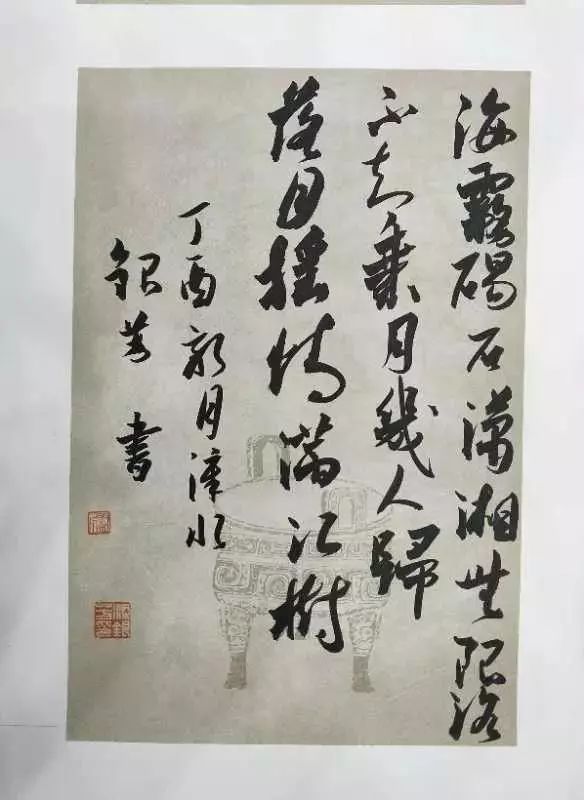 海霧碣石瀟湘無限路
不知乘月幾人歸
落月摇情滿江樹
丁酉月漳水
銀書